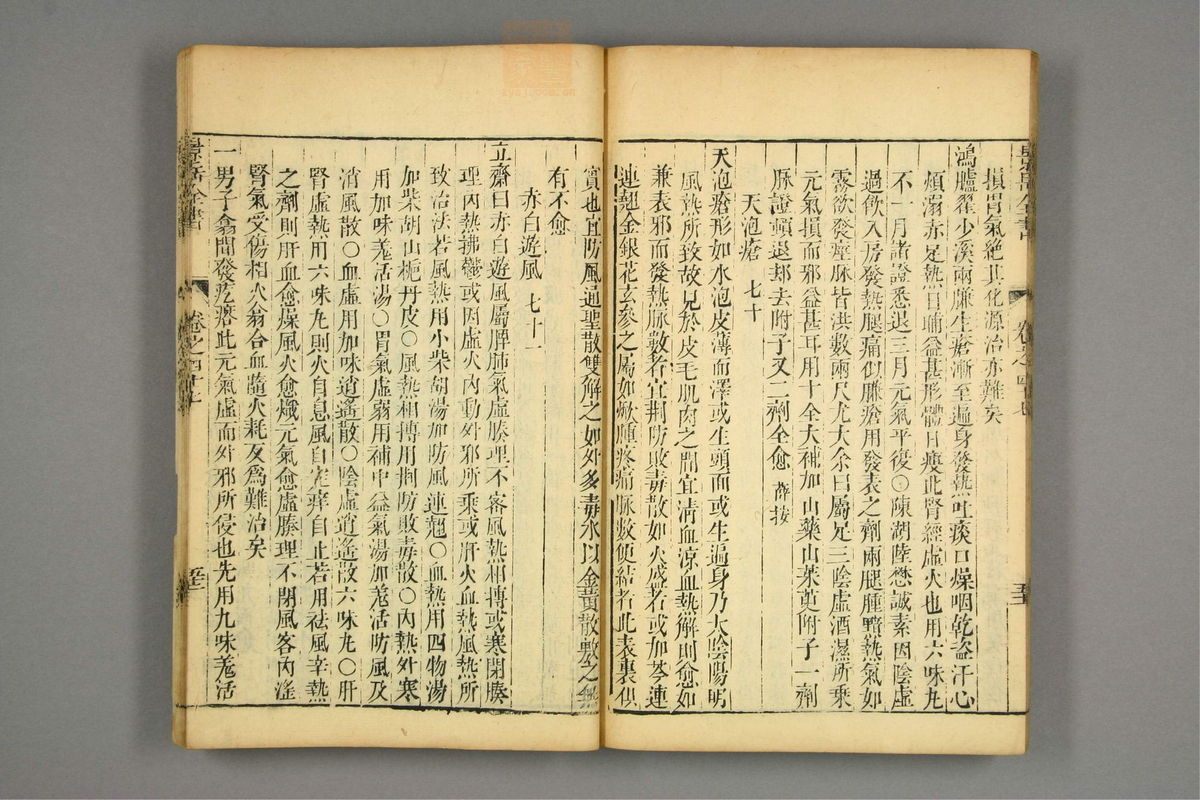 損胃氣絶其化源治亦難矣
鴻臚翟少溪兩臁生瘡漸至遍身發熱吐痰口燥咽乾盗汗心
煩溺赤足熱日晡益甚形體日瘦此腎經虚火也用六味丸
不一月諸證悉退三月元氣平復○陳湖陸懋誠素因陰虚
過飲入房發熱腿痛似臁瘡用發表之劑兩腿腫黯熱氣如
霧欲發痙脉皆洪數兩尺尤大余曰屬足三陰虚酒濕所乗
元氣損而邪益甚耳用十全大補加山藥山茱萸附子一劑
脉證頓退却去附子又二劑全愈 薛按
天泡瘡 七十
天泡瘡形如水泡皮薄而澤或生頭面或生遍身乃太陰陽明
風熱所致故見於皮毛肌肉之間宜清血凉血熱解則愈如
兼表邪而發熱脉數者宜荆防敗毒散如火盛者或加芩連
連翹金銀花玄參之屬如焮腫疼痛脉數便結者此表裏俱
實也宜防風通聖散雙解之如外多毒水以金黄散敷之無
有不愈
赤白遊風 七十一
立齋曰赤白遊風屬脾肺氣虚腠理不密風熱相搏或寒閉腠
理内熱拂鬱或因虚火内動外邪所乗或肝火血熱風熱所
致治法若風熱用小柴胡湯加防風連翹○血熱用四物湯
加柴胡山梔丹皮○風熱相搏用荆防敗毒散○内熱外寒
用加味羗活湯○胃氣虚弱用補中益氣湯加羗活防風及
消風散○血虚用加味逍遙散○陰虚逍遙散六味丸○肝
腎虚熱用六味丸則火自息風自定痒自止若用祛風辛熱
之劑則肝血愈燥風火愈熾元氣愈虚腠理不閉風客内淫
腎氣受傷相火翕合血隨火耗反爲難治矣
一男子秋間發疙瘩此元氣虚而外邪所侵也先用九味羗活
景岳全書
卷之四十七